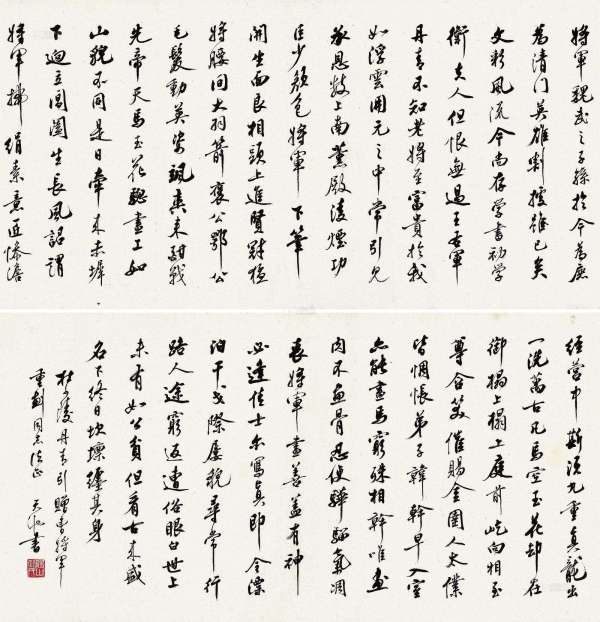 將軍魏武之子孫於今為庶
為清門英雄割據雖已矣
文彩風流今尚存學書初學
衛夫人但恨無過王右軍
丹青不知老將至富貴於我
如浮雲開元之中常引見
承恩數上南薰殿凌煙功
臣少顏色將軍下筆
開生面良相頭上進賢冠猛
將腰間大羽箭褒公鄂公
毛髮動英姿颯爽來酣戰
先帝天馬玉花驄畫工如
山貌不同是日牽來赤墀
下迥立閶闔生長風詔謂
將軍拂絹素意匠慘澹
經營中斯須九重真龍出
一洗萬古凡馬空玉花却在
御榻上榻上庭前屹向相至
尊含笑催賜金圉人太僕
皆惆悵弟子韓幹早入室
亦能畫馬窮殊相幹唯畫
肉不畫骨忍使驊騮氣凋
喪將軍畫善蓋有神
必逢佳士亦寫真即今漂
泊干戈際屢貌尋常行
路人途窮返遭俗眼白世上
未有如公貧但看古來盛
名下終日坎壈纏其身
杜陵丹青引贈曹將軍
同志法正
書